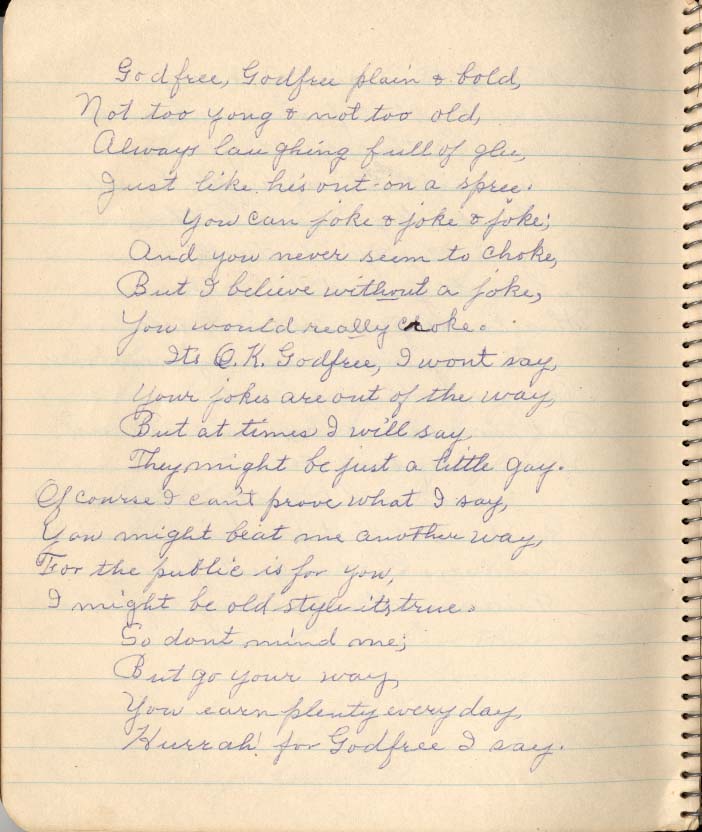 Godfree, Godfree plain & bold,
Not too yong & not too old,
Always laughing full of glee,
Just like he's out on a spree.
You can joke & joke & joke;
And you never seem to choke,
But I believe without a joke,
You would really croke.
Its O.K. Godfree, I wont say,
Your jokes are out of the way,
But at times I will say
They might be just a little gay.
Of course I can't prove what I say,
You might beat me another way,
For the public is for you,
I might be old style it's true.
So dont mind me;
But go your way,
You earn plenty every day,
Hurrah! for Godfree I say.